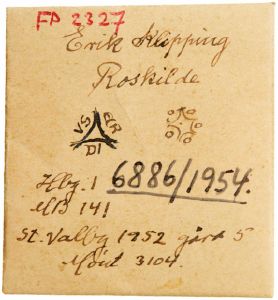 FP 2327
Erik Klipping
Roskilde
VS DR DI
Hbg. 1 6886/1954.
MB 141
St. Valby 1952 gård 5
Mønt 3104.